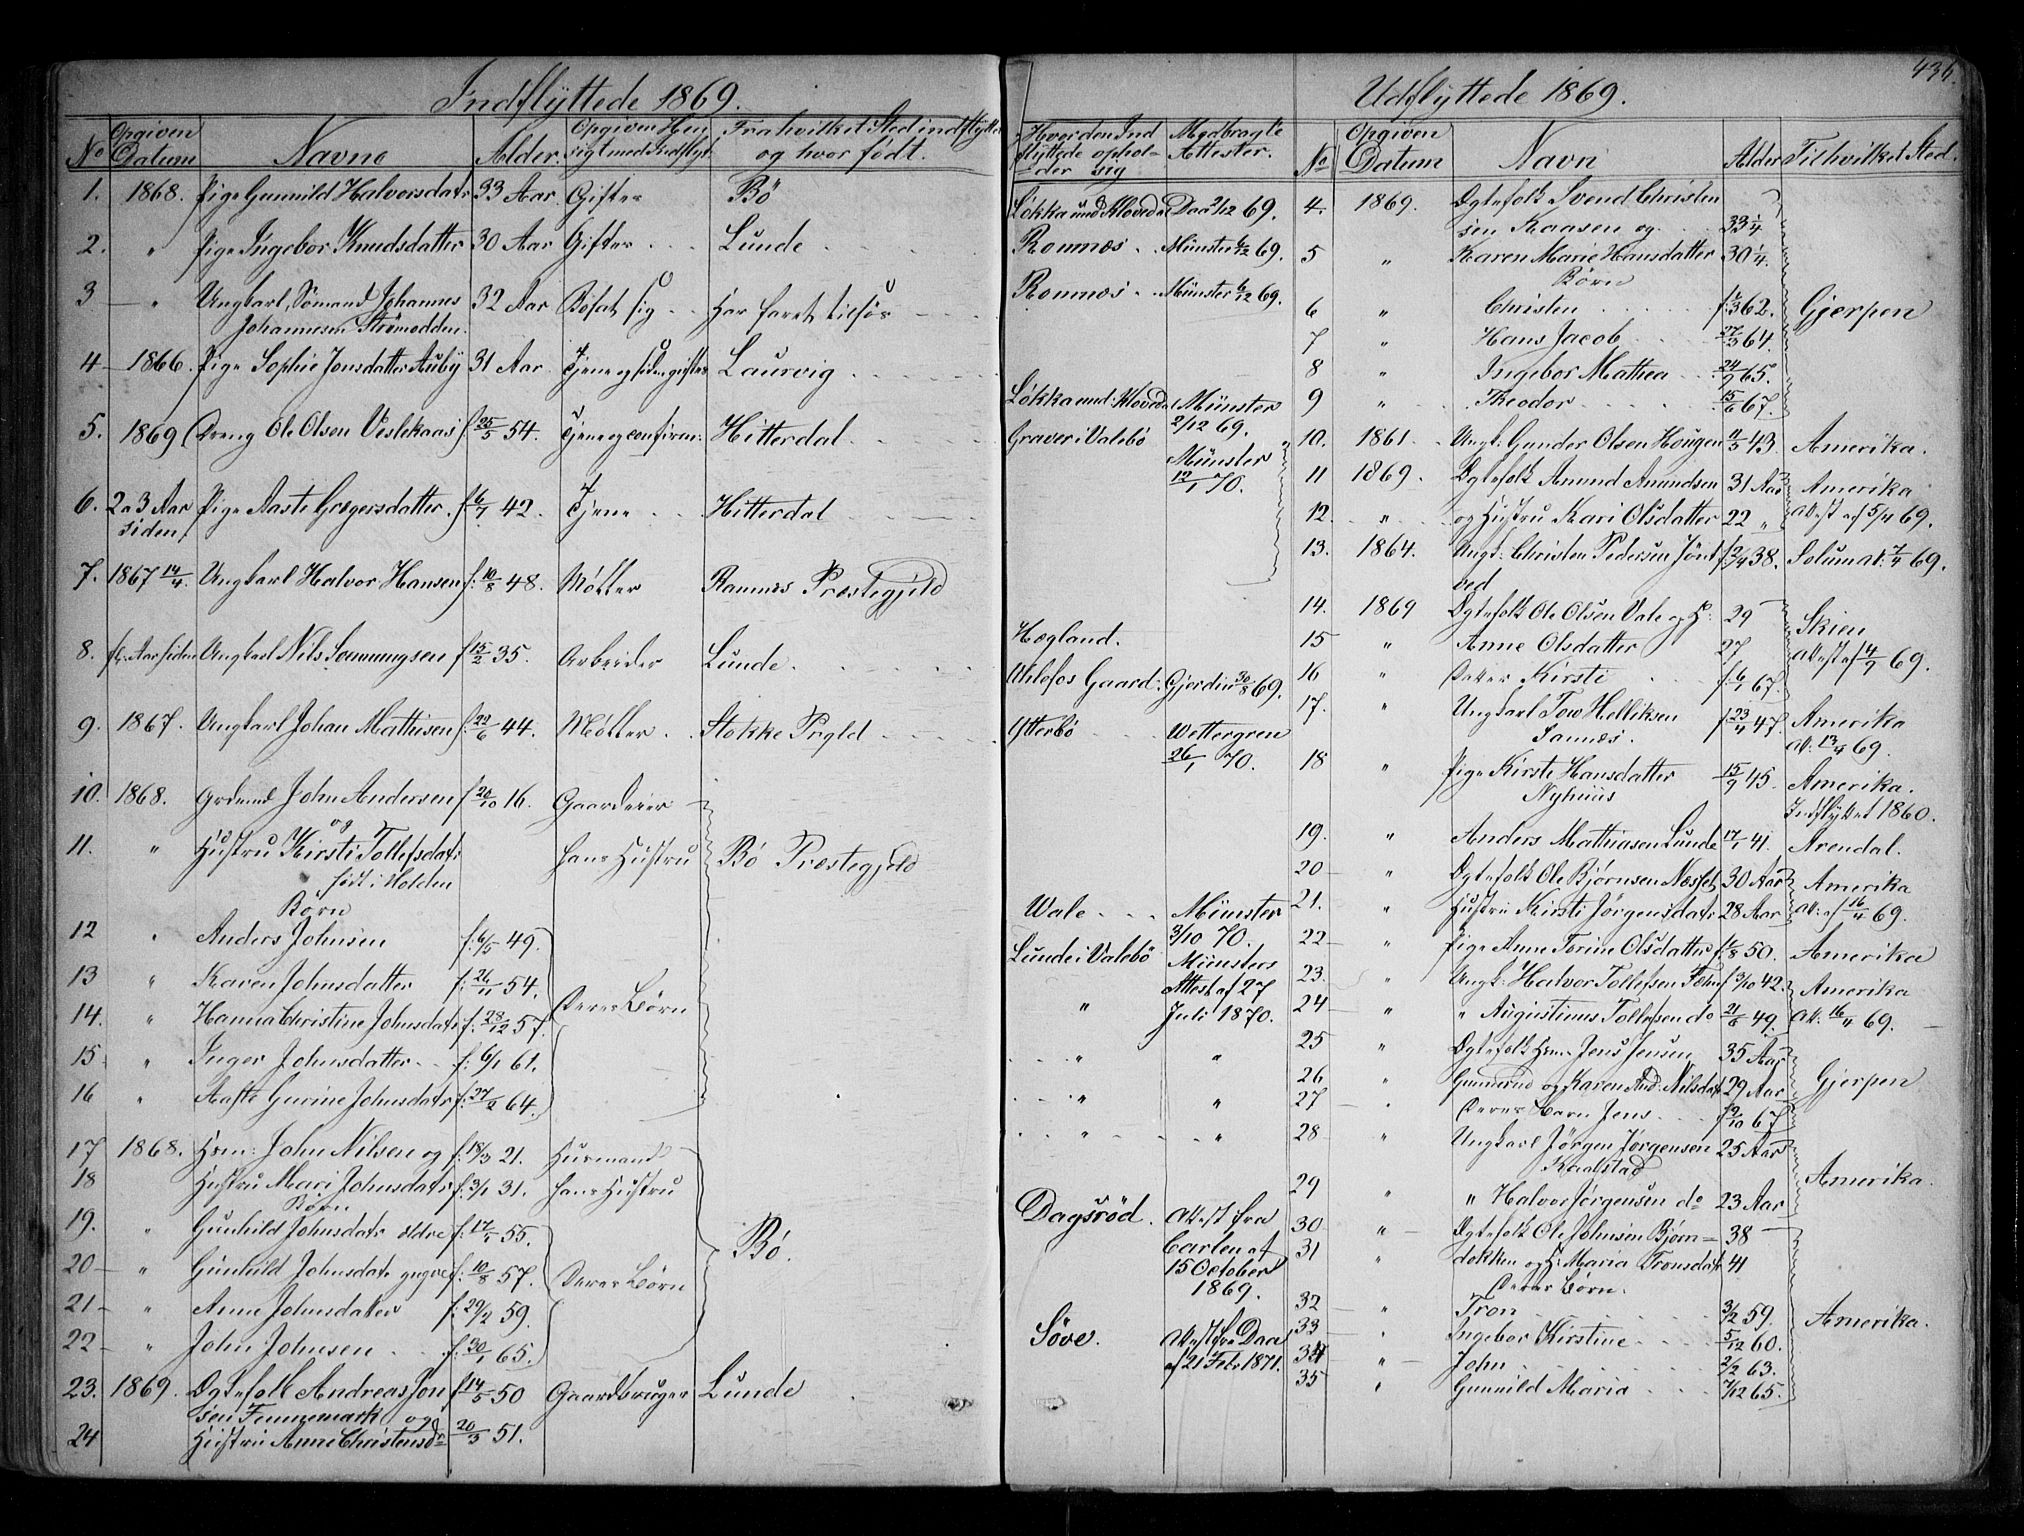 Indflyttede 1869.
No
Opgiven Datum
Navne
Alder.
Opgiven Hensigt med Indflyt.
Fra hvilket Sted indflyttet og hvor født.
1. 1868. Pige Gunnild Halvorsdatr 33 Aar Giftes Bö
2. " Pige Ingebor Knudsdatter 30 Aar Gifter Lunde
3 " Ungkarl, Sömand Johannes 32 Aar Bosat sig Har faret tilsös
Johannesen Strömodden.
4 1866. Pige Sophie Jonsdatter Auby 31 Aar Tjene og siden giftes Laurvig
5. 1869 Dreng Ole Olson Veslekaas f 25/5 54. Tjene og confirm: Hitterdal
6. 2 a 3 Aar Pige Aaste Gregersdatter. f 6/7 42. Tjene Hitterdal
siden
7. 1867 14/4. Ungkarl Halvor Hansen f: 10/8 48. Møller Ramnes Præstegjeld
8. fl. Aar siden Ungkarl Nils f 15/2 35. Arbeider Lunde.
9. 1867. Ungkarl Johan Mathisen f: 22/6 44. Møller Stokke Prgld
10. 1868. Grdmnd John Andersen f 20/10 16. Gaardeier
og
11. " Hustru Kirsti Tollefsdatr hans Hustru Bö Præstegjeld
født i Holden
Børn
12 " Anders Johnsen f: 6/5 49.
13 " Karen Johnsdatter f: 26/11 54.
14. " Hanna Christine Johnsdatr f: 28/12 57. Deres Børn
15 " Inger Johnsdatter f: 6/1 61.
16 " Aaste Gurine Johnsdatr f: 27/2 64.
17 1868. Hsm: John Nilsen og f: 18/3 21. Husmand
18 Hustru Mari Johnsdatr f: 3/1 31. hans Hustru
Børn
19. " Gunhild Johnsdatr eldre f: 17/1 55. Bö.
20 " Gunhild Johnsdatr yngre f: 10/8 57. Deres Børn
21 " Anne Johnsdatter f: 29/2 59.
22 " John Johnsen f: 30/1 65.
23. 1869. Ægtefolk Andreas Jon f 14/5 50 Gaardbruger Lunde
sen Finnemark og
24 Hustru Anne Christensdr 20/3 51.
436.
Udflyttede 1869.
Hvor den Indflyttede opholder sig
Medbragte Attester.
No
Opgiven Datum
Navn
Alder
Til hvilket Sted.
Løkka und: Kloveda Daa 2/12 69. 4. 1869. Ægtefolk Svend Christen
sen Kaasen og 33 1/4
Romnæs Münster 6/12 69. 5 " Karen Marie Hansdatter 30 1/4.
Børn
Romnæs Münster 6/12 69. 6 " Christen 62. Gjerpen
7 " Hans Jacob 27/3 64.
8 " Ingebor Mathea 24/9 65.
Løkka und: Kloveda Münster 9 " Theodor 15/6 67.
2/12 69.
Graver i Valebö Münster 10. 1861. Ungk: Gunder Olsen Hougen 11/5 43 Amerika.
12/1 70. 11 1869. Ægtefolk Amund Amundsen 31 Aar Amerika
12. " og Hustru Kari Olsdatter 22 " att af 5/4 69.
13. 1864. Ungk: Christen Pedersen f 2/4 38. Solum at: 7/4 69.
14. 1869 Ægtefolk Ole Olsen Vale og H: 29 Skien
Hægland. 15 " Anne Olsdatter 27 attest af 4/9 69.
Ulefos Gaard: Gjerdin 30/8 69. 16 " Datter Kirsti f: 6/1 67.
17. " Ungkarl Tow Helliksen f 23/4 47. Amerika
Sannes. at: 13/4 69.
Ytterbö Wettergren 18 " Pige Kirste Hansdatter 15/9 45. Amerika.
26/1 70. Nyhuus Indflyttet 1860.
19. " Anders Mathiasen Lunde 17/1 41. Arendal.
20 " Ægtefolk Ole Bjørnsen Næsset 30 Aar Amerika
Vale Münster 21. " Hustru Kirsti Jørgensdatr 28 Aar at: af 16/4 69.
3/10 70. 22 " Pige Anne Torine Olsdatter f 1/8 50. Amerika
Lunde i Valebö Münsters 23. " Ungk: Halvor Tollefsen f 3/10 42. Amerika
Attest af 27
" Juli 1870. 24 " " Augustinus Tollefsen do 21/6 49. At: 16/4 69.
" " 25 " Ægtefolk Hsm: Jens Jensen 35 Aar
26 " Gunnerud og Karen And: Nilsdatr 29 Aar Gjerpen
" " 27 " Deres Barn Jens f 2/10 67
" " 28 " Ungkarl Jörgen Jørgensen 25 Aar
Kaalstad Amerika.
29 " " Halvor Jørgensen do 23 Aar
Dagsröd. Attest fra 30 " Ægtefolk Ole Johnsen Bjørn= 38
Carlen af 31 " dokken og H: Maria Tronsdatr 41
15 October Deres Børn.
1869. 32 " Tron 3/2 59. Amerika.
Söve. Attest fra Daa 33 " Ingebor Kirstine 5/12 60.
af 21 Febr 1871. 34 " John 2/2 63.
35 " Gunnild Maria 7/12 65.